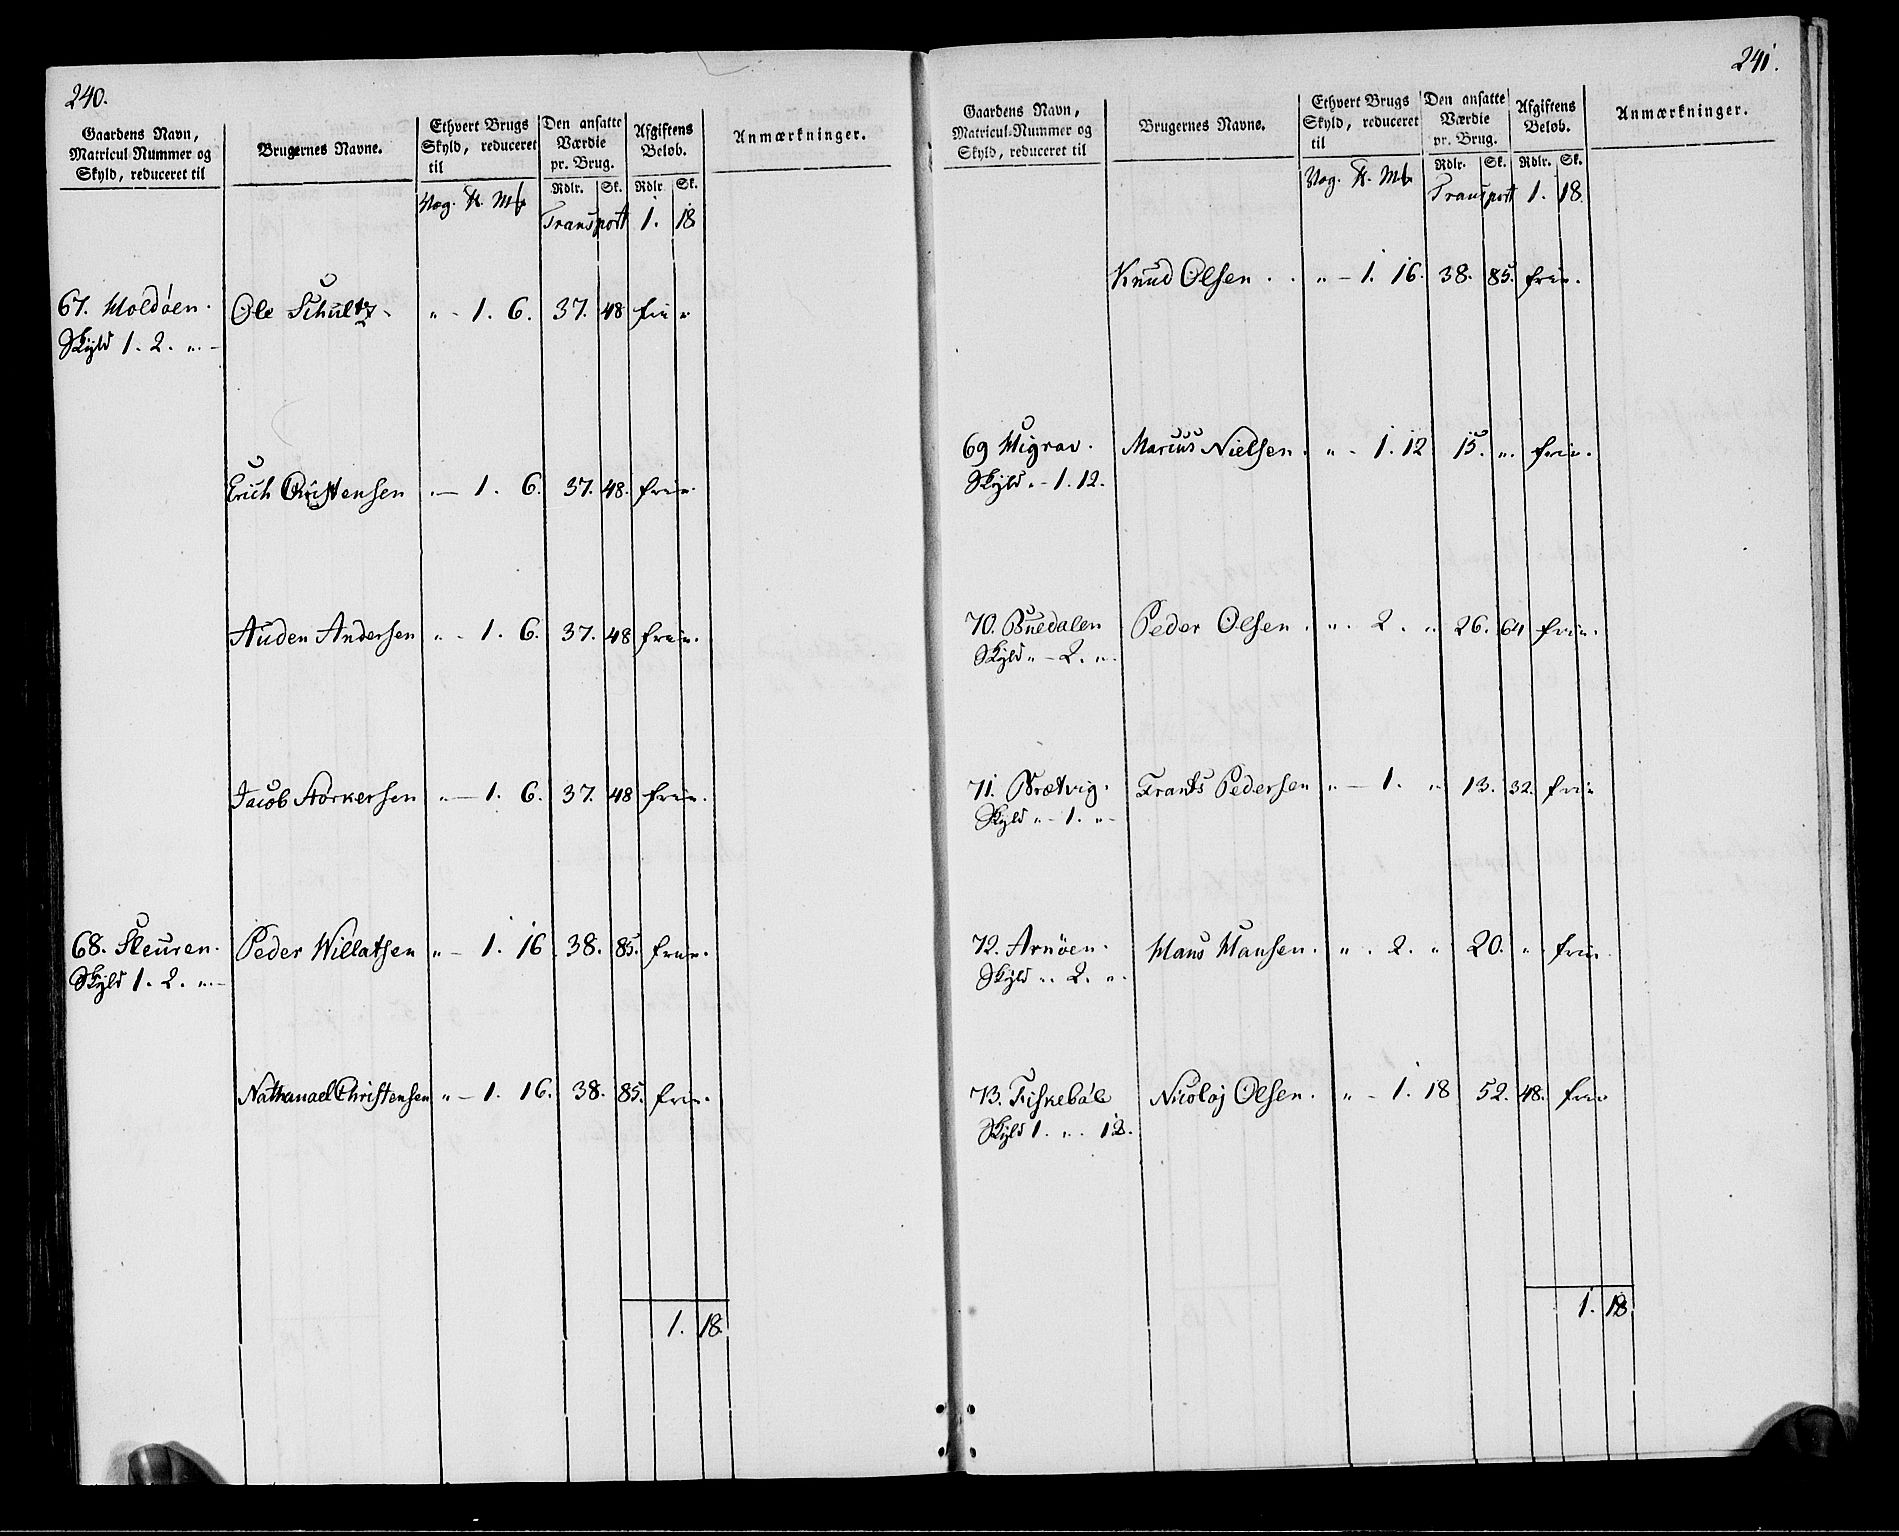 240.
Gaardens Navn, Matricul Nummer og Skyld, reduceret til
Brugernes Navne.
Ethvert Brugs Skyld, reduceret til
Den ansatte Værdie pr. Brug.
Afgiftens Beløb.
Anmærkninger.
Vog. ℔. Mk
Rdlr. Sk. Rdlr. Sk.
Transport 1. 18.
67. Holdöen. Ole Schultz. „ - 1. 6. 37. 48 frie „
Skyld 1. 2. „. -
Erich Christensen „ - 1. 6. 37. 48. frie „.
Auden Andersen „ - 1. 6. 37. 48 frie „.
Jacob Storkersen „ - 1. 6. 37. 48 frie „.
68. Sleuren. Peder Willatsen „ - 1. 16. 38. 85. frie „.
Skyld 1. 2. „. -
Nathanael Christensen „ - 1. 16. 38. 85. frie „.
1. 18.
241.
Gaardens Navn, Matricul-Nummer og Skyld, reduceret til
Brugernes Navne.
Ethvert Brugs Skyld, reduceret til
Den ansatte Værdie pr. Brug.
Afgiftens Beløb.
Anmærkninger.
Vog. ℔. Mk
Rdlr. Sk. Rdlr. Sk.
Transport 1. 18.
Knud Olsen . . „ - 1. 16. 38. 85. frie „.
69 Higrav. Marcus Nielsen. „ - 1. 12 15. „. frie „.
Skyld „ - 1. 12.
70. Buedalen Peder Olsen. „. 2. „ 26. 64 frie „.
Skyld „ - 2. „.
71. Brætvig. Frants Pedersen „ - 1. „ 13. 32. frie
Skyld „ - 1. „ -
72. Arnöen. Hans Hansen. „ . 2. „ 20. „ frie
Skyld „. 2. „.
73. Fiskeböl Nicolaj Olsen. „ - 1. 18 52. 48. frie
Skyld 1. „. 18.
1. 18.